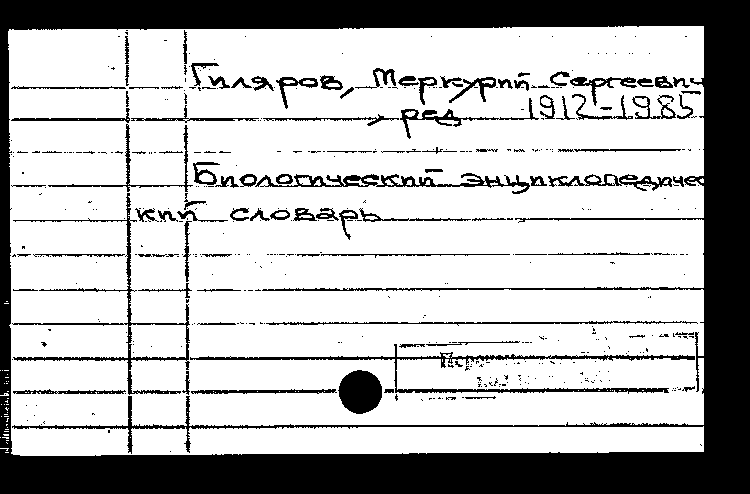 Гиляров, Меркурий Сергеевич
, ред 1912-1985
Биологический энциклопедичес
кий словарь